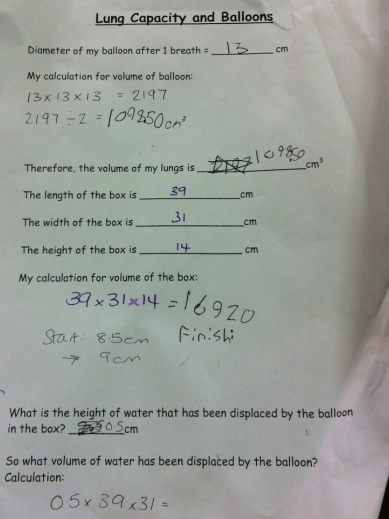 Lung Capacity and Balloons
Diameter of my balloon after 1 breath = 13 cm
My calculation for volume of balloon:
13 x 13 x 13 = 2197
2197 ÷ 2 = 109850cm³
Therefore, the volume of my lungs is 109850 cm³
The length of the box is 39 cm
The width of the box is 31 cm
The height of the box is 14 cm
My calculation for volume of the box:
39 x 31 x 14 = 16920
Start: 8.5cm Finish:
→ 9cm
What is the height of water that has been displaced by the balloon
in the box? 05cm
So what volume of water has been displaced by the balloon?
Calculation:
05 x 39 x 31 =